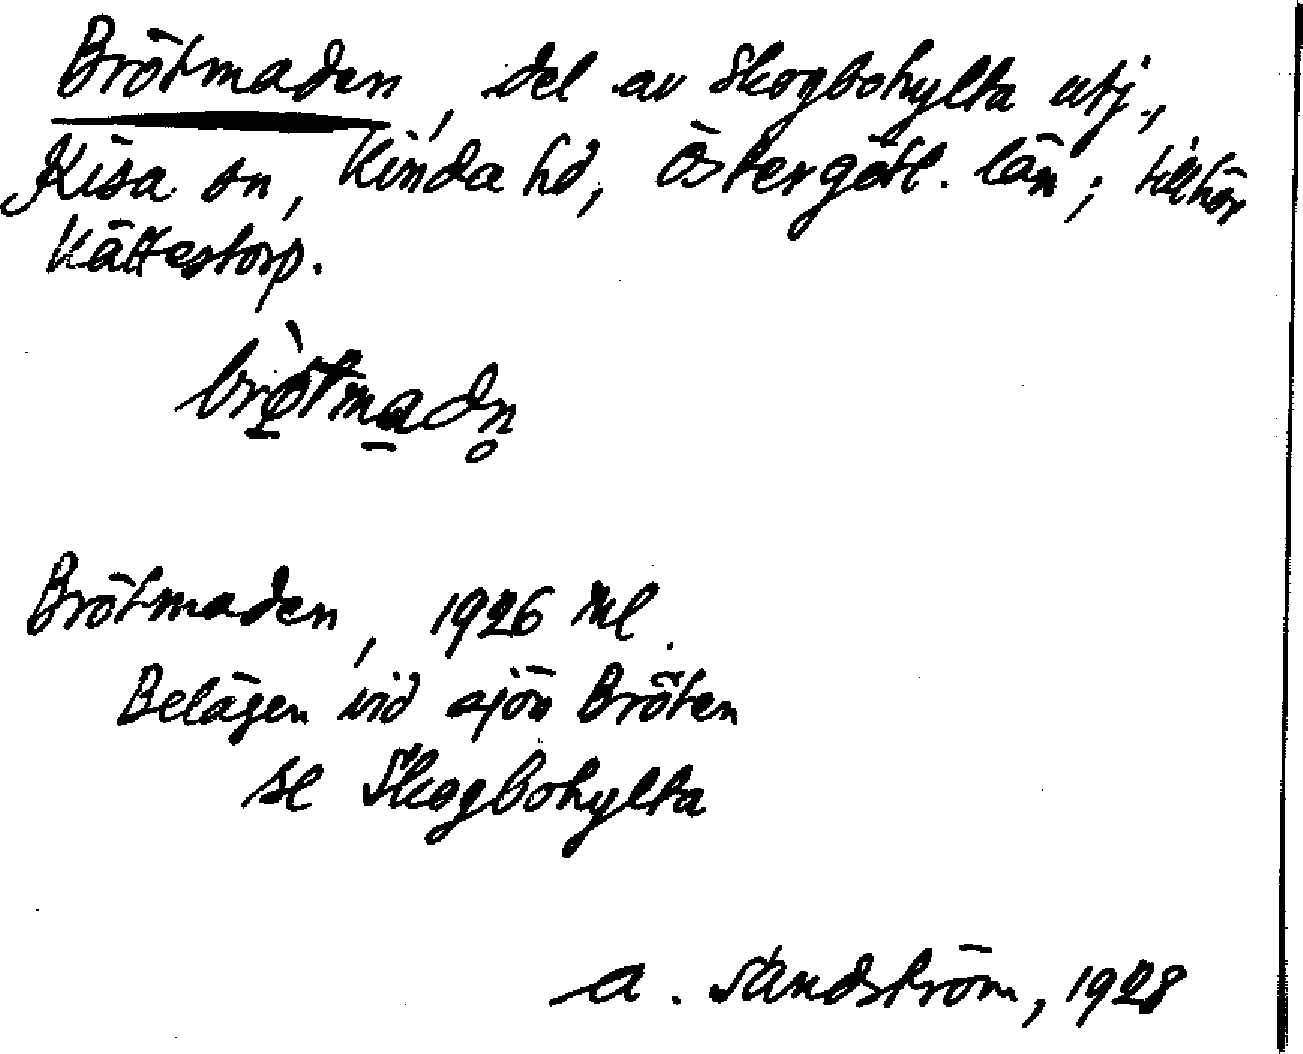 Brötmaden, del av Skogbohylta utj.,
Kisa sn, Kinda hd, Östergötl. län; tillhör
Kättestorp.
brötmadn
Brötmaden, 1926 Ml.
Belägen vid sjön Bröten
se Skogbohylta
A. Sandström, 1928